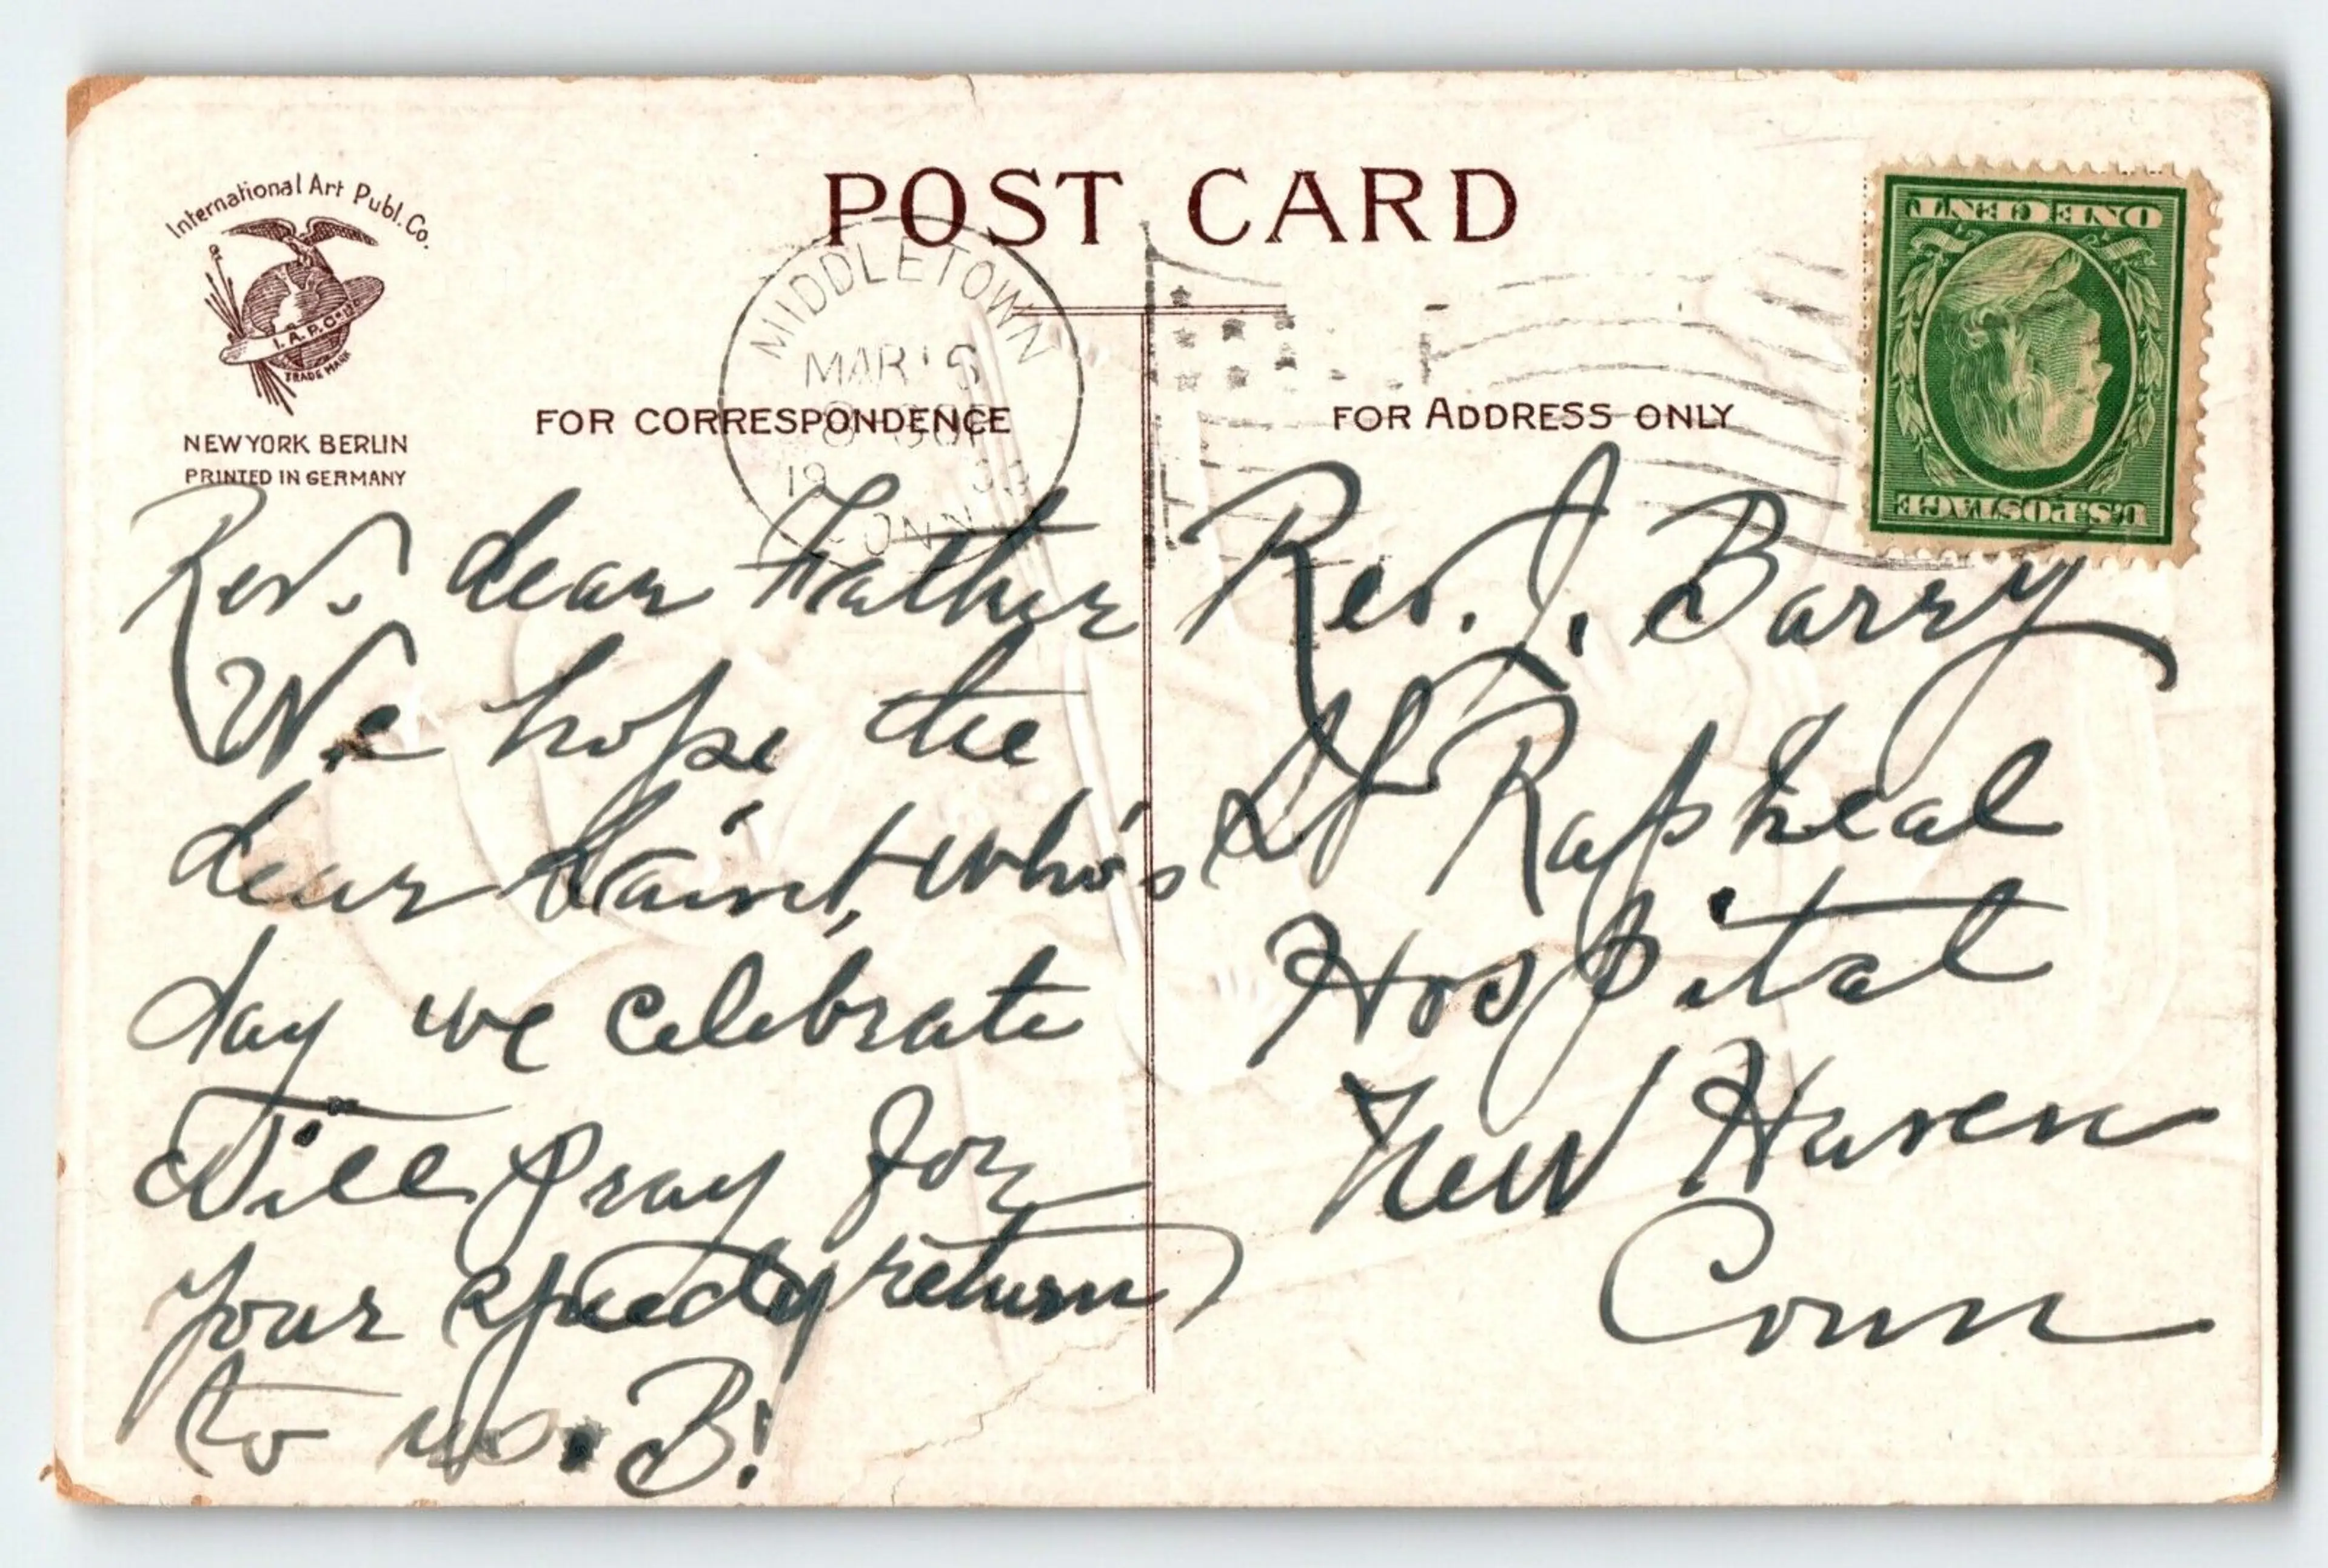 International Art Publ. Co.
I. A. P. Co.
TRADE MARK
NEW YORK BERLIN
PRINTED IN GERMANY
POST CARD
MIDDLETOWN
MAR
19
CONN
FOR CORRESPONDENCE
FOR ADDRESS ONLY
U.S. POSTAGE
ONE CENT
Rev. dear Father
We hope the
dear Saint, who's
day we celebrate
Will pray for
your speedy return
to us. B!
Rev. J. Barry
St Rapheal
Hospital
New Haven
Conn